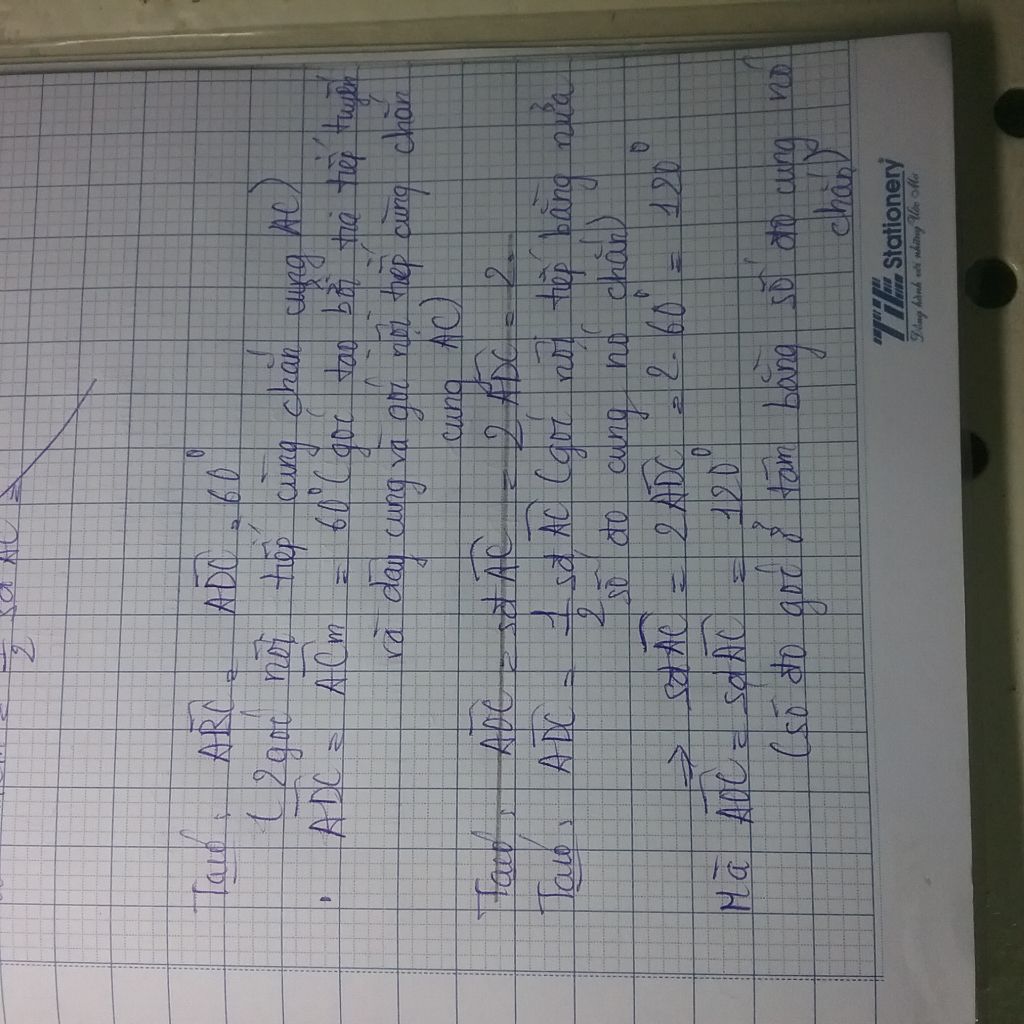 Ta có: ABC = ADC = 60°
( 2 góc nội tiếp cùng chắn cung AC)
. ADC = ACm = 60° (góc tạo bởi tia tiếp tuyến
và dây cung và góc nội tiếp cùng chắn
cung AC)
Ta có: AOC = sđ AC = 2 ADC = 2.
Ta có: ADC = 1/2 sđ AC (góc nội tiếp bằng nửa
số đo cung nó chắn)
=> sđ AC = 2 ADC = 2.60° = 120°
Mà AOC = sđ AC = 120°
(số đo góc ở tâm bằng số đo cung nó
chắn)
TIE Stationery
Đồng hành với những Ước Mơ